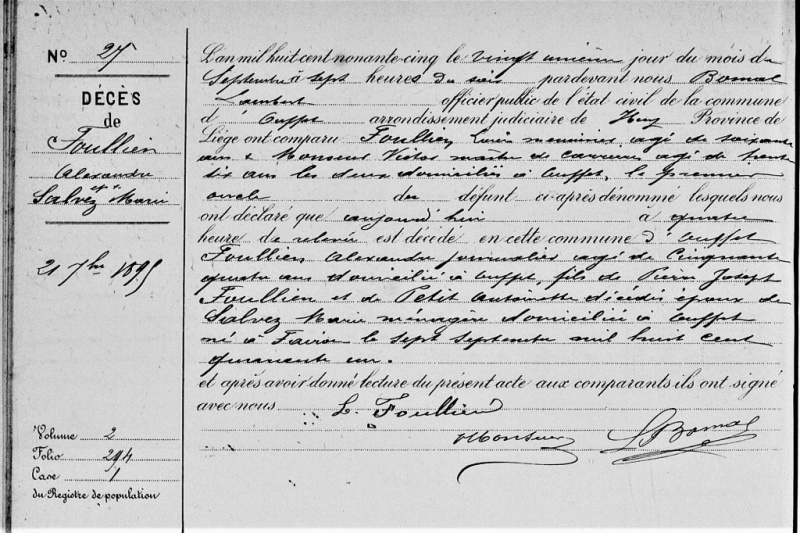 No 27
DÉCÈS
de
Foullien
Alexandre
et
Salvez Marie
21 7bre 1895
Volume 2
Folio 294
Case 1
du Registre de population
L'an mil huit cent nonante-cinq le vingt unième jour du mois de
Septembre à sept heures du soir pardevant nous Bomal
Lambert officier public de l'état civil de la commune
d'Ouffet arrondissement judiciaire de Huy Province de
Liège ont comparu Foullien Louis menuisier, agé de soixante
ans & Monseur Victor maître de carrières agé de trente
six ans les deux domiciliés à Ouffet, le premier
oncle du défunt ci-après dénommé lesquels nous
ont déclaré que aujourd'hui à quatre
heure de relevée est décédé en cette commune d'Ouffet
Foullien Alexandre journalier agé de Cinquante
quatre ans domicilié à Ouffet, fils de Pierre Joseph
Foullien et de Petit Antoinette décédés époux de
Salvez Marie ménagère domiciliée à Ouffet
né à le sept Septembre mil huit cent
quarante un.
et après avoir donné lecture du présent acte aux comparants ils ont signé
avec nous L. Foullien
Monseur LBomal